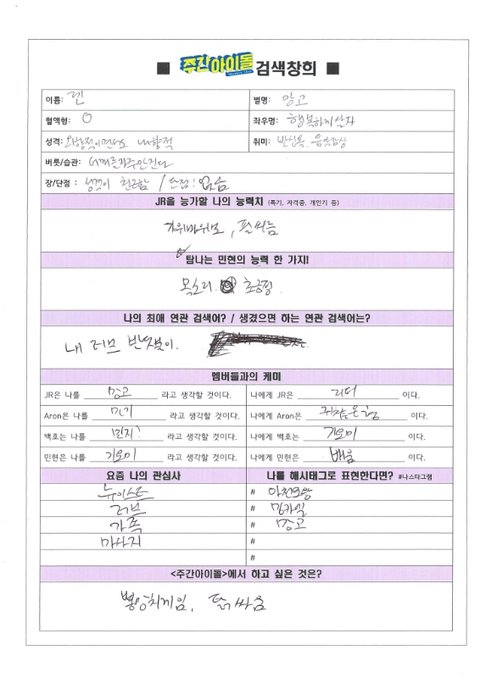 ■ 주간아이돌 검색창희 ■
이름: 렌 별명: 망고
혈액형: O 좌우명: 행복하게살자
성격: 외향적이면서도 내향적 취미: 반신욕 음악감상
버릇/습관:
장/단점: 성격이 천근함 / 단점: 없음
JR을 능가할 나의 능력치 (특기, 자격증, 개인기 등)
가위바위보, 팔씨름
탐나는 민현의 능력 한 가지!
목소리. 초긍정.
나의 최애 연관 검색어? / 생겼으면 하는 연관 검색어는?
내 러브
멤버들과의 케미
JR은 나를 망고 라고 생각할 것이다. 나에게 JR은 리더 이다.
Aron은 나를 아기 라고 생각할 것이다. 나에게 Aron은 귀찮은형 이다.
백호는 나를 민기! 라고 생각할 것이다. 나에게 백호는 기요미 이다.
민현은 나를 기요미 라고 생각할 것이다. 나에게 민현은 배움 이다.
요즘 나의 관심사 나를 해시태그로 표현한다면? #나스타그램
뉴이스트 #
러브 #
가족 # 망고
마사지 #
#
<주간아이돌>에서 하고 싶은 것은?
뿅망치게임, 닭싸움